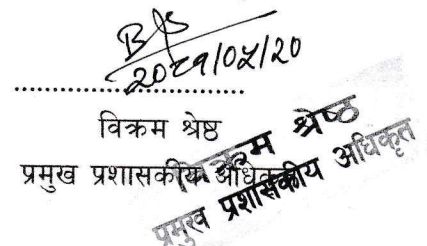 २०८१/०५/२०
विक्रम श्रेष्ठ
प्रमुख प्रशासकीय अधिकृत
विक्रम श्रेष्ठ
प्रमुख प्रशासकीय अधिकृत